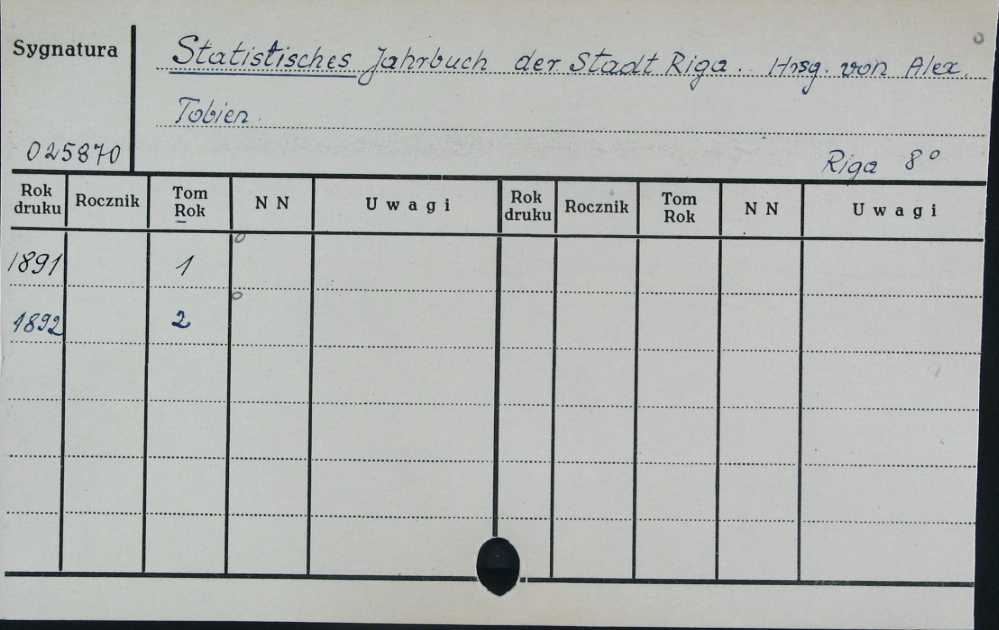 Sygnatura
Statistisches Jahrbuch der Stadt Riga. Hrsg. von Alex.
Tobien.
025870
Riga 8°
Rok druku Rocznik Tom Rok NN Uwagi Rok druku Rocznik Tom Rok NN Uwagi
1891 1
1892 2